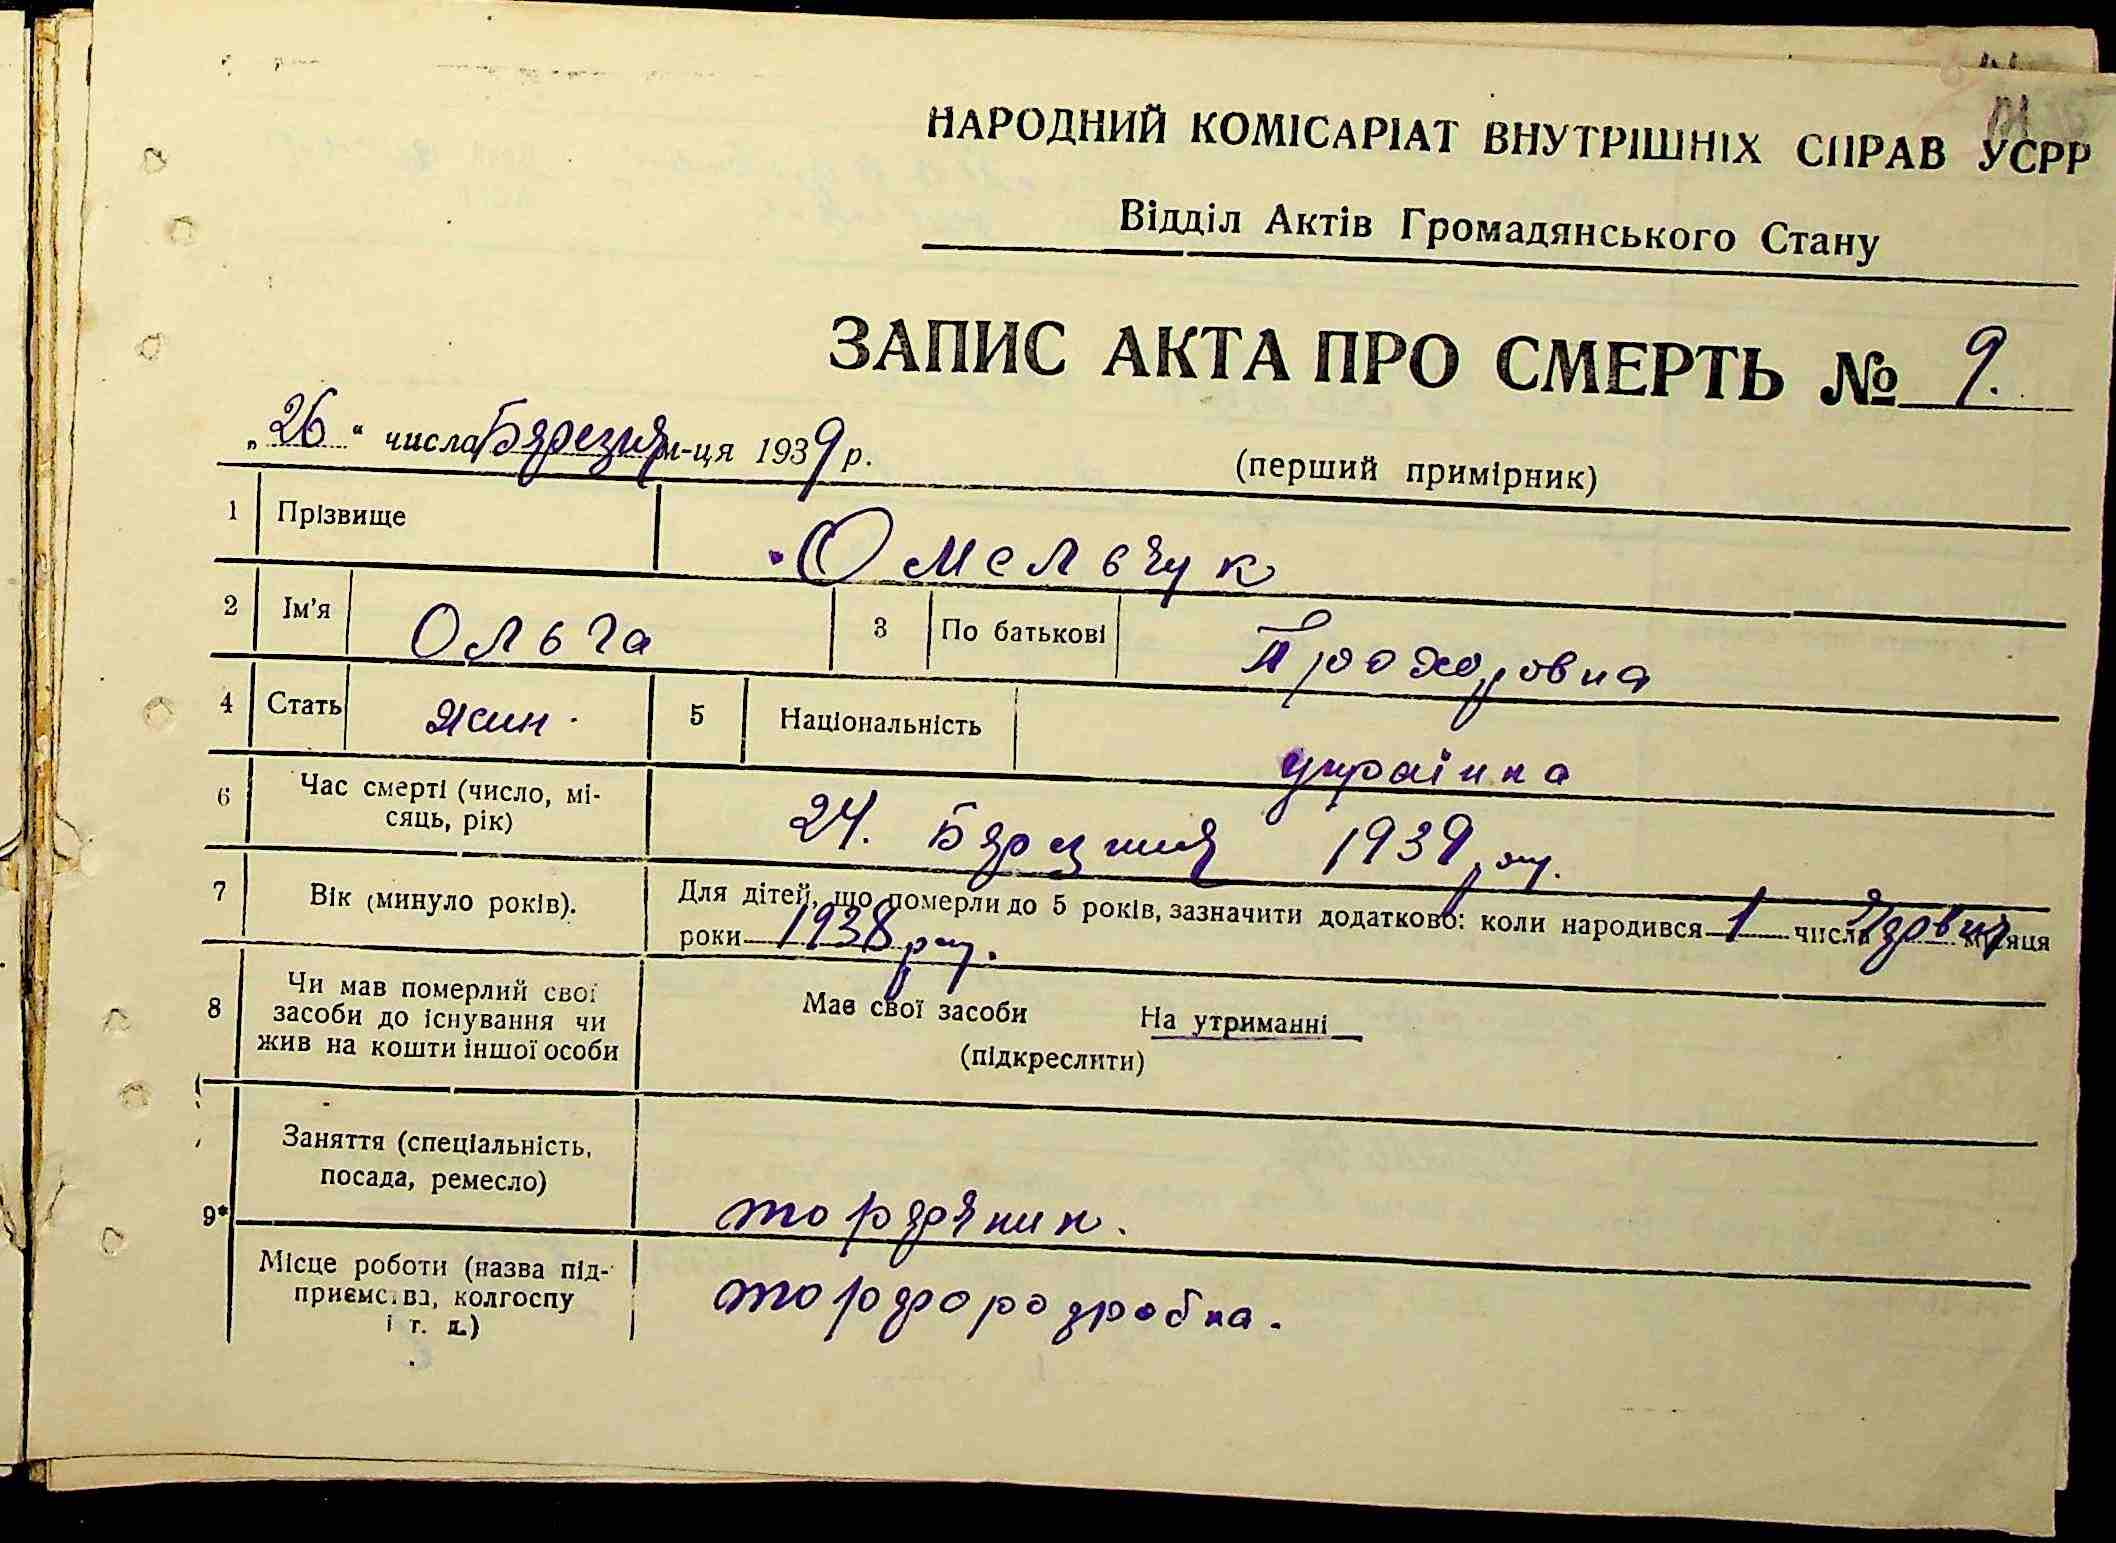 НАРОДНИЙ КОМІСАРІАТ ВНУТРІШНІХ СПРАВ УСРР
Відділ Актів Громадянського Стану
ЗАПИС АКТА ПРО СМЕРТЬ № 9.
„26“ числа Бярезня м-ця 1939 р.
(перший примірник)
1 Прізвище Омельчук
2 Ім'я Ольга 3 По батькові Прохоровна
4 Стать жин. 5 Національність українка
6 Час смерті (число, мі-
сяць, рік) 24. Бярезня 1939 р.
7 Вік (минуло років). Для дітей, що померли до 5 років, зазначити додатково: коли народився 1 числа місяця
роки 1938 р.
8 Чи мав померлий свої
засоби до існування чи
жив на кошти іншої особи
Мав свої засоби На утриманні
(підкреслити)
9* Заняття (спеціальність,
посада, ремесло) торфяник.
Місце роботи (назва під-
приємства, колгоспу
і т. д.) торфорозробка.